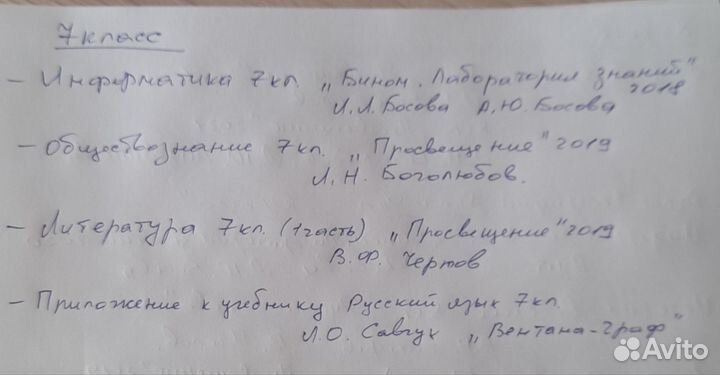 7 класс
- Информатика 7 кл. „Бином. Лаборатория знаний"
2018
Л.Л. Босова А.Ю. Босова
- Обществознание 7 кл. „Просвещение" 2019
Л.Н. Боголюбов.
- Литература 7 кл. (1 часть) „Просвещение" 2019
В.Ф. Чертов
- Приложение к учебнику Русский язык 7 кл.
Л.О. Савчук „Вентана-Граф"
Avito